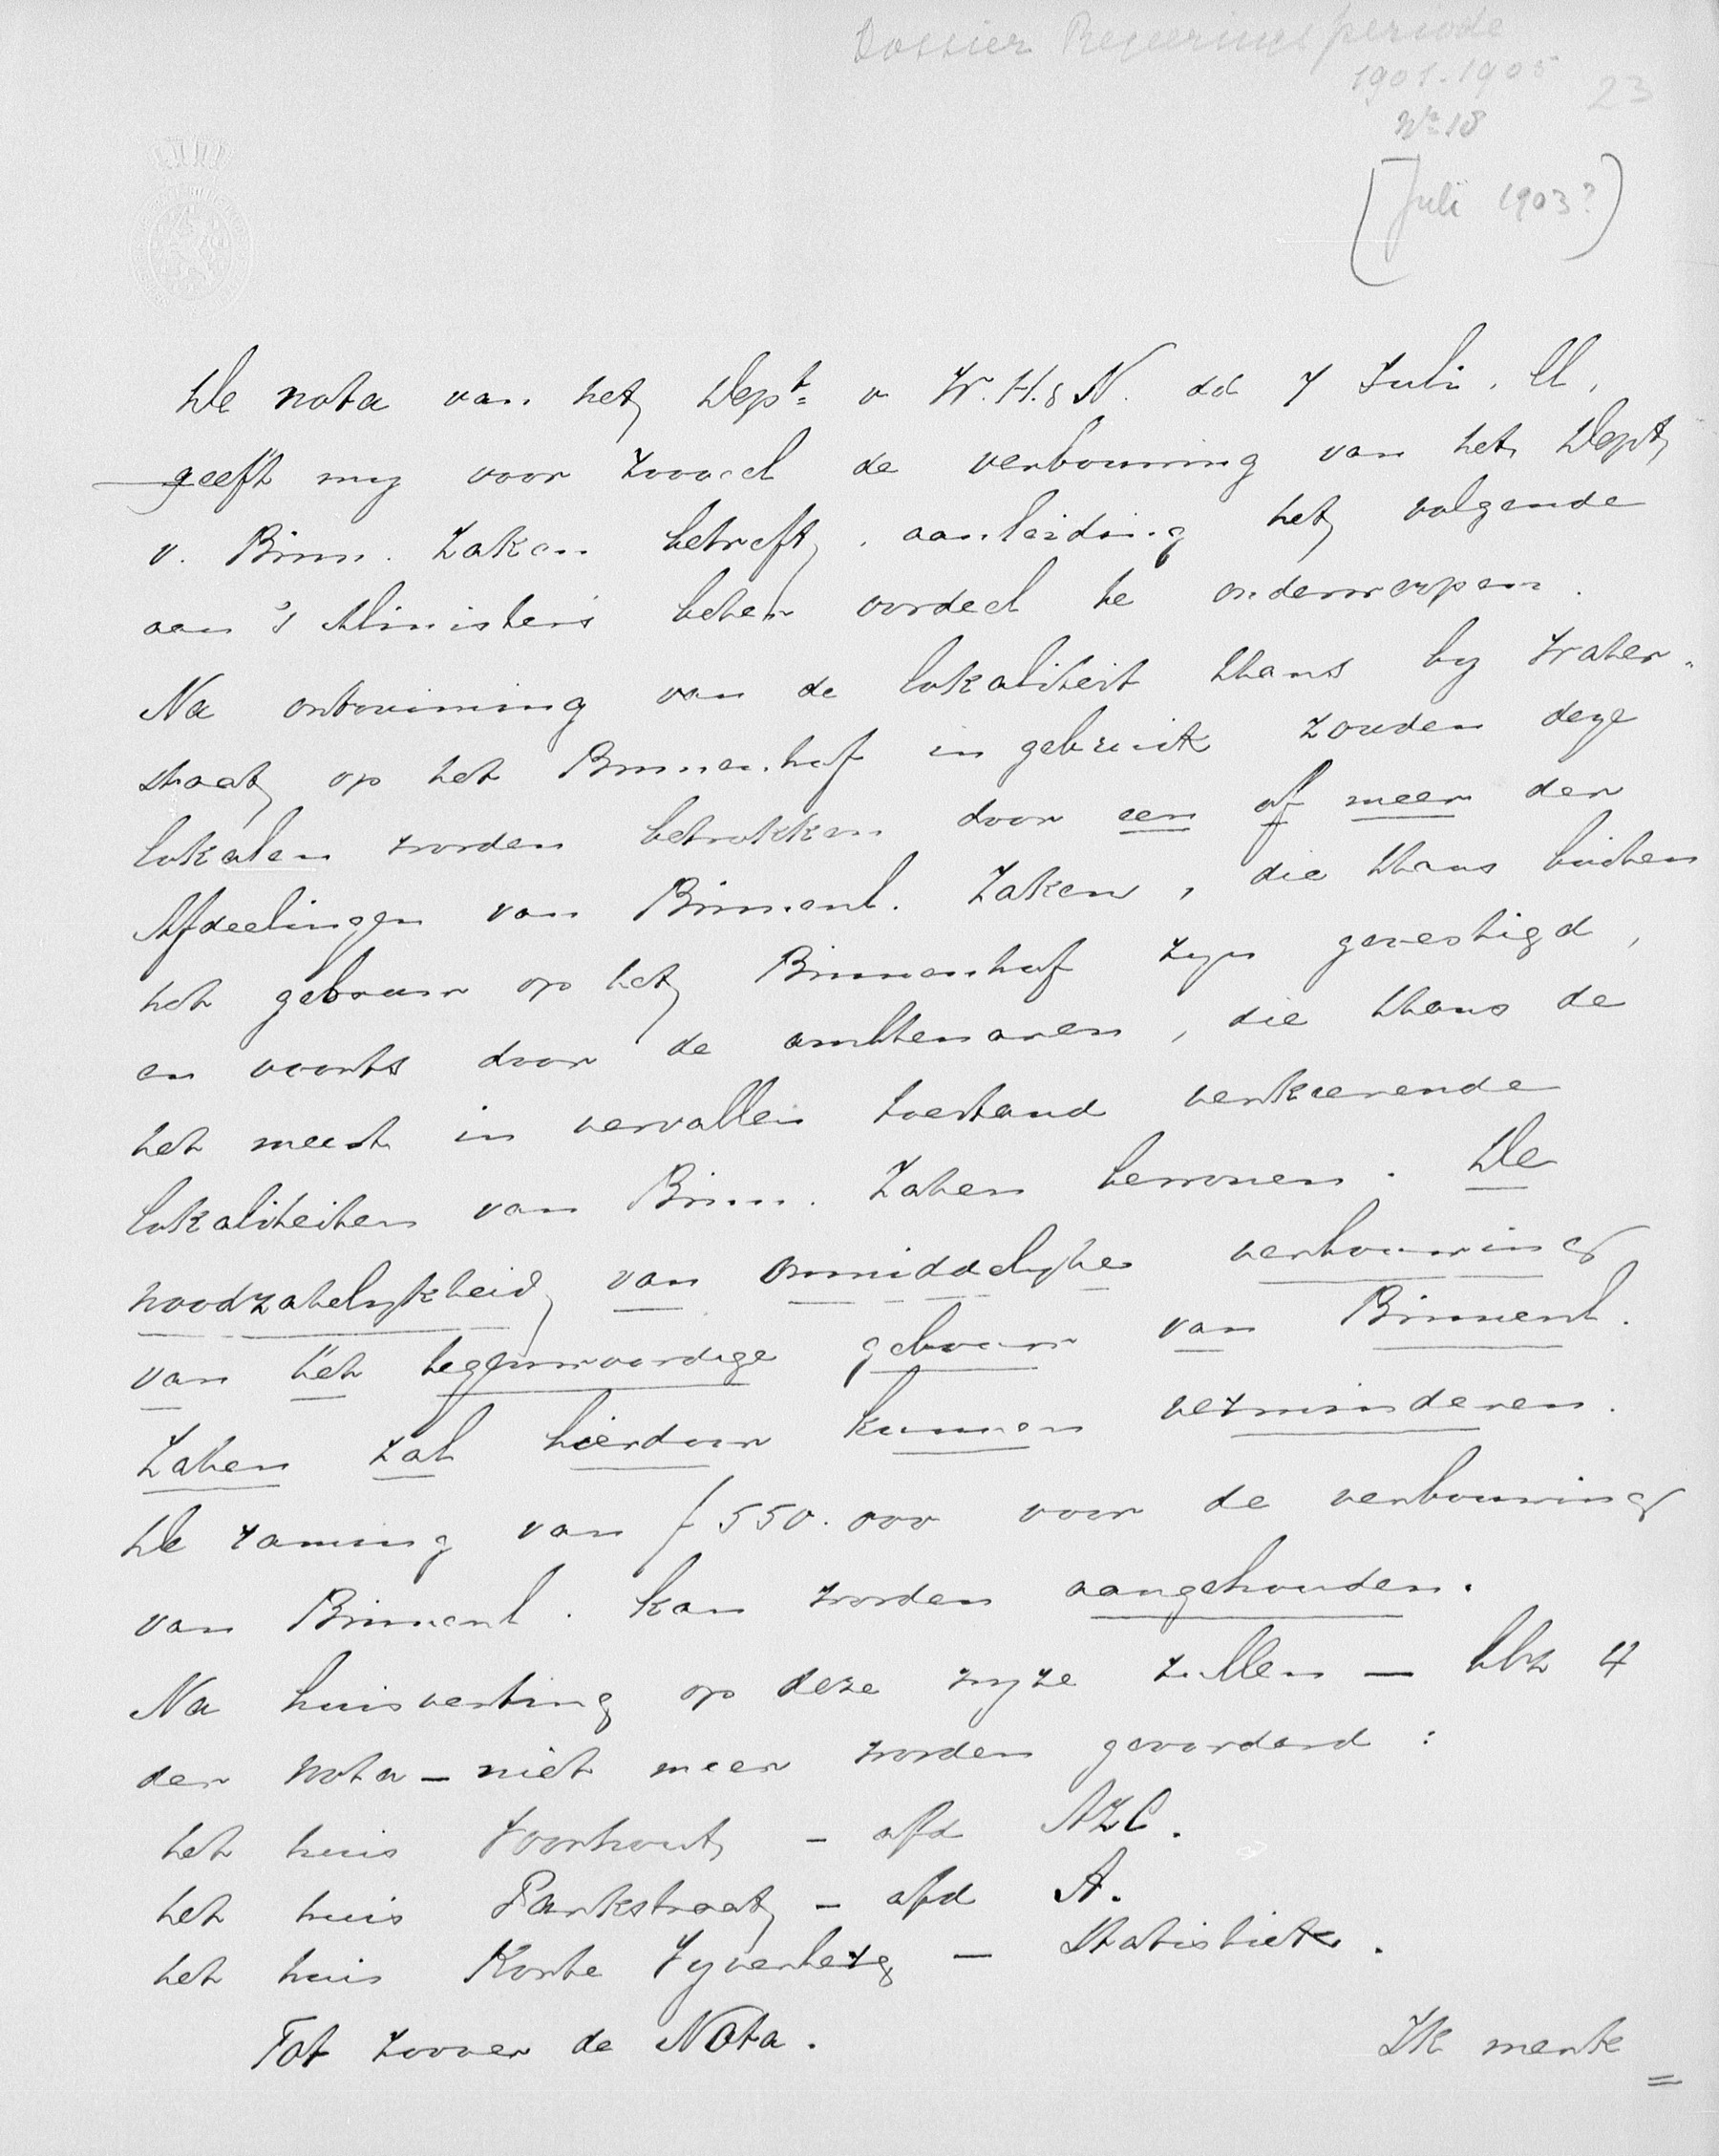 Dossier Regeeringsperiode
1901-1905
23
No 18
(Juli 1903?)
De nota van het Dept v W. H. & N. dd 7 Juli. ll.
geeft my voor zooveel de verbouwing van het Dept
v. Binn. Zaken betreft, aanleiding het volgende
aan 's Ministers beter oordeel te onderwerpen.
Na ontruiming van de lokaliteit thans by Water-
staat op het Binnenhof in gebruik zouden deze
lokalen worden betrokken door een of meer der
Afdeelingen van Binnenl. Zaken, die thans buiten
het gebouw op het Binnenhof zyn gevestigd,
en voorts door de ambtenaren, die thans de
het meest in vervallen toestand verkeerende
lokaliteiten van Binn. Zaken bewonen. De
noodzakelykheid van onmiddelyke verbouwing
van het tegenwoordige gebouw van Binnenl.
Zaken zal hierdoor kunnen verminderen.
De raming van f 550.000 voor de verbouwing
van Binnenl. kan worden aangehouden.
Na huisvesting op deze wyze zullen — blz 4
der nota — niet meer worden gevorderd:
het huis Voorhout — afd AZC.
het huis Parkstraat — afd A.
het huis Korte Vyverberg — Statistiek.
Tot zoover de Nota.
Ik merk